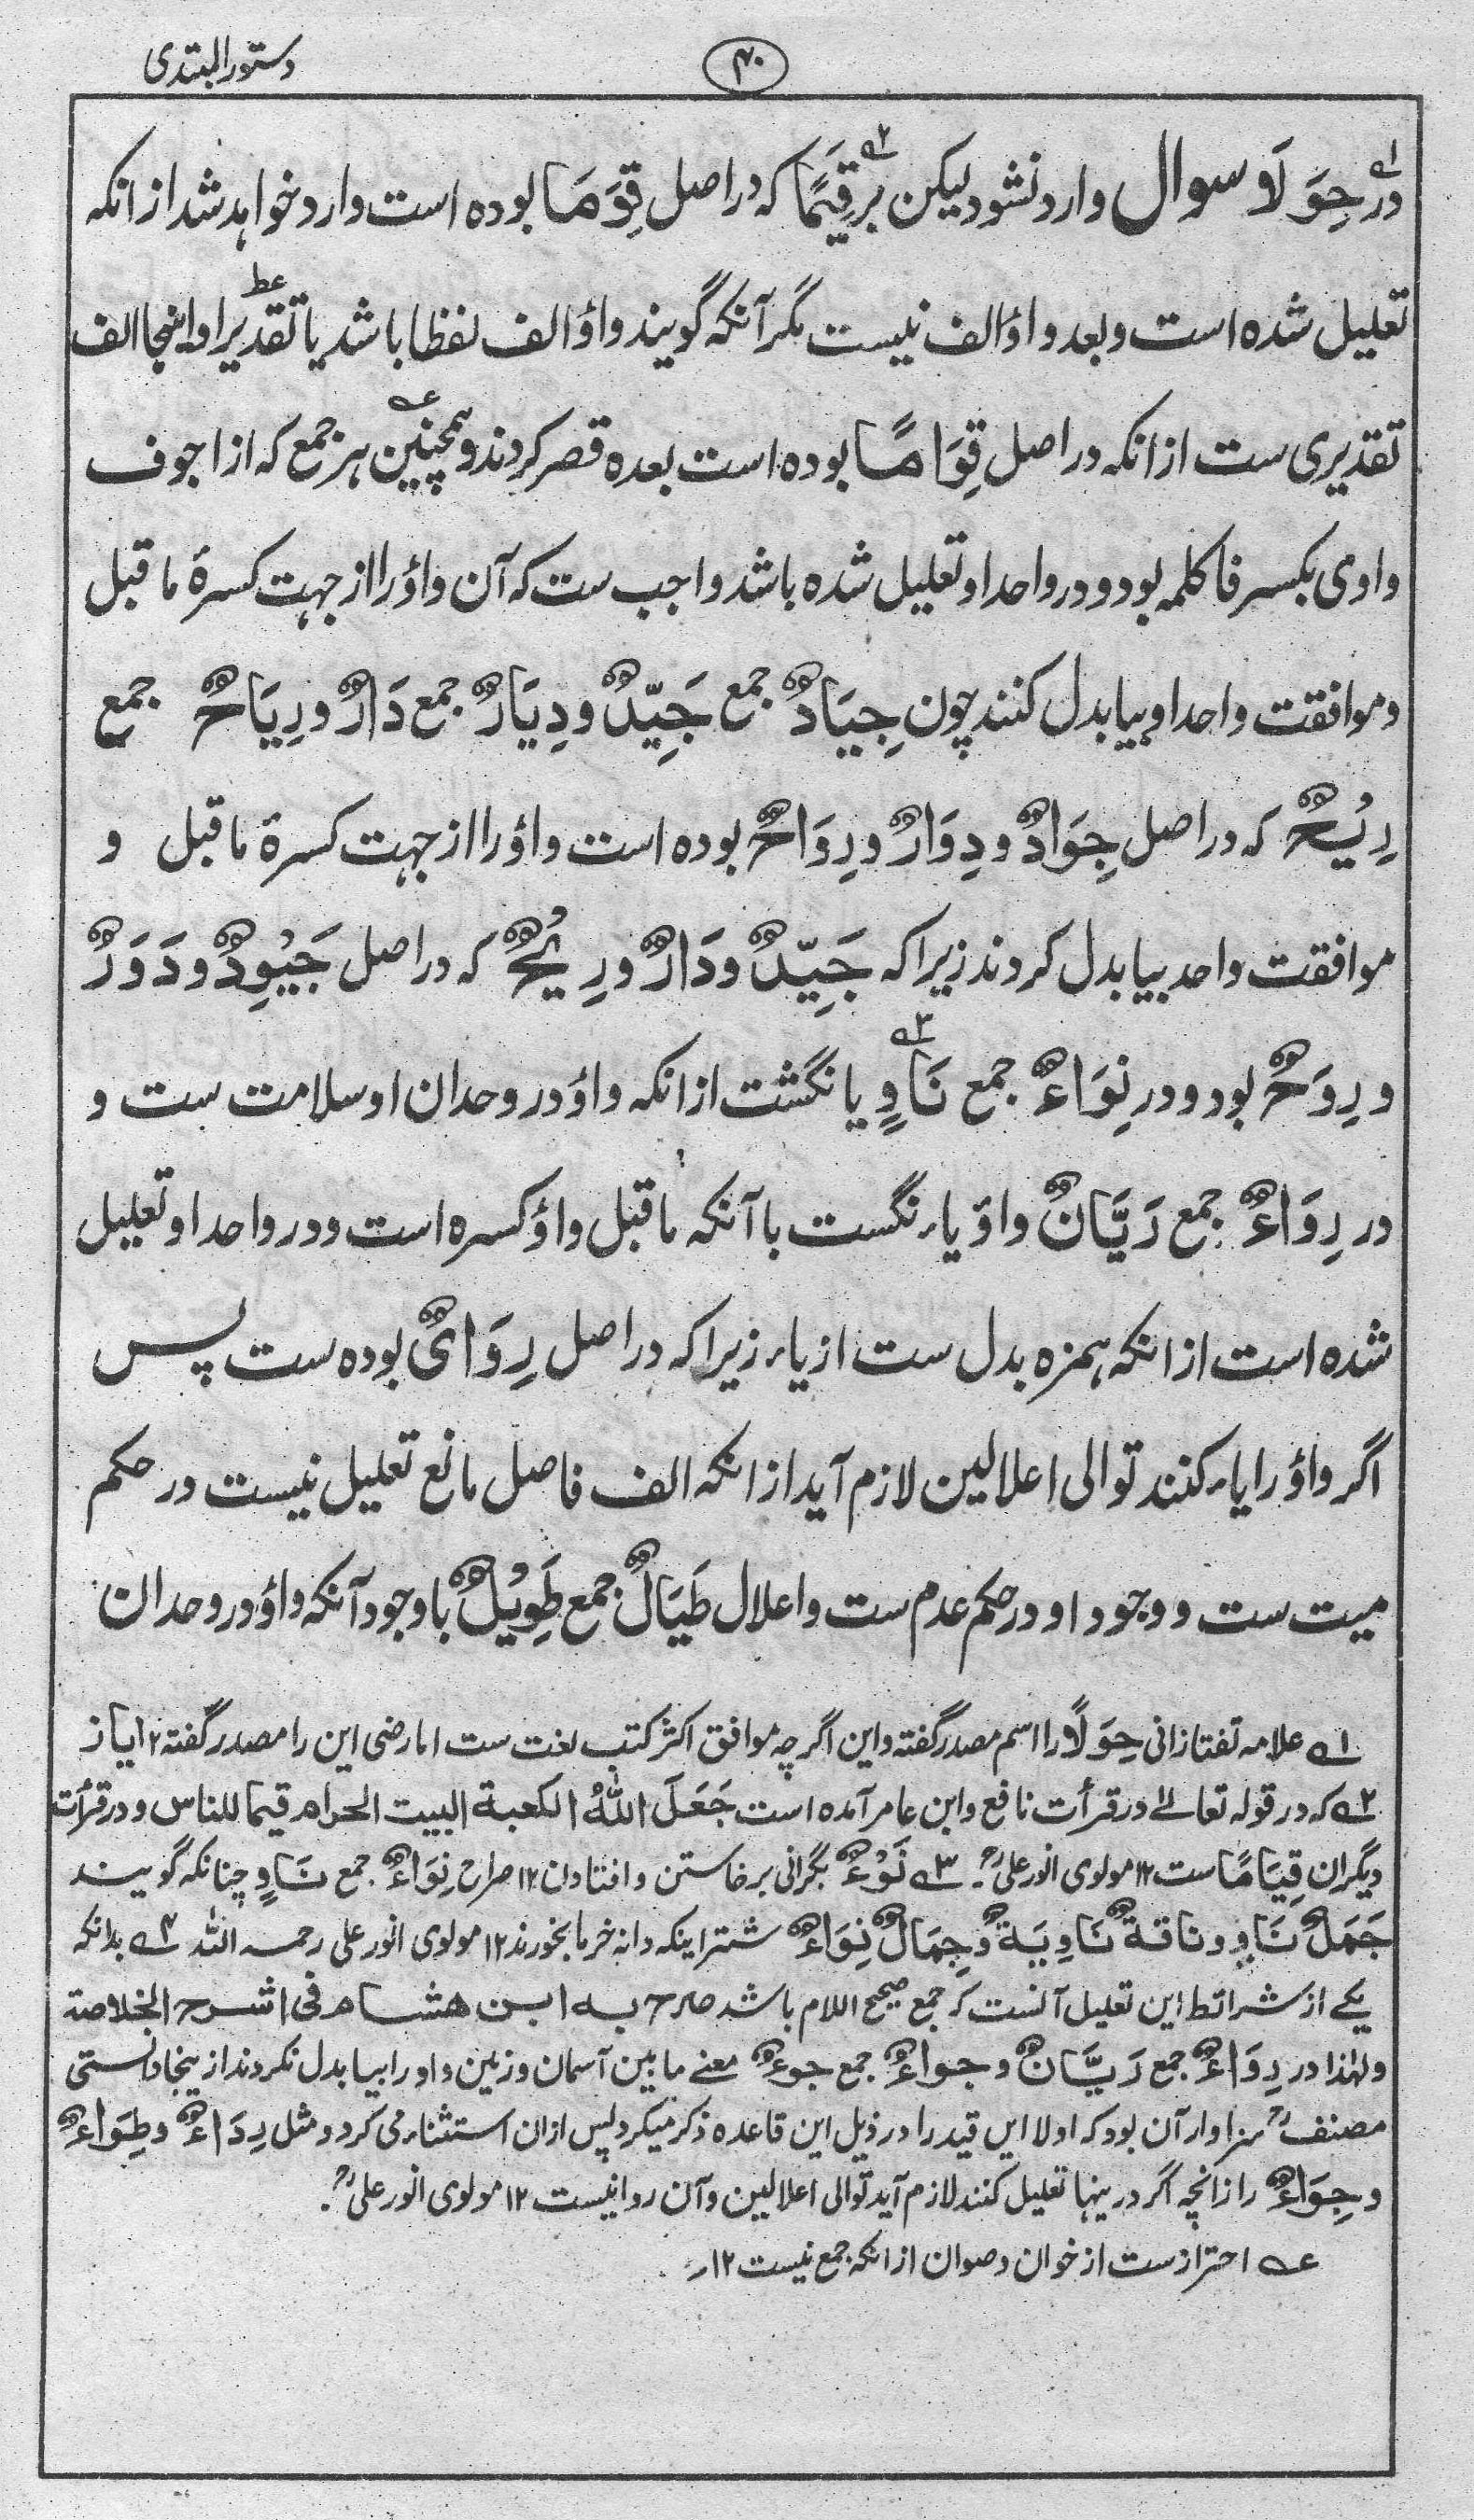 دستور المبتدی
۴۰
در حِوَلًا و سوال وارد نشود لیکن بر قِیَمًا که در اصل قِوَمًا بوده است وارد خواهد شد از انکه
تعلیل شده است و بعد واؤ الف نیست مگر آنکه گویند واؤ الف لفظا باشد یا تقدیرا و اینجا الف
تقدیری ست از انکه در اصل قِوَامًا بوده است بعده قصر کردند و همچنین هر جمع که از اجوف
واوی بکسر فا کلمه بود و در واحد او تعلیل شده باشد واجب ست که آن واؤ را از جهت کسرهٔ ما قبل
و موافقت واحد او بیا بدل کنند چون جِیَادٌ جمع جَیِّدٌ و دِیَارٌ جمع دَارٌ و رِیَاحٌ جمع
رِیْحٌ که در اصل جِوَادٌ و دِوَارٌ و رِوَاحٌ بوده است واؤ را از جهت کسرهٔ ما قبل و
موافقت واحد بیا بدل کردند زیرا که جَیِّدٌ و دَارٌ و رِیْحٌ که در اصل جَیْوِدٌ و دَوَرٌ
و رِوْحٌ بود و در نِوَاءٌ جمع نَاوٍ یا نگشت از انکه واؤ در وحدان او سلامت ست و
در رِوَاءٌ جمع رَیَّانٌ واؤ یاء نگست با آنکه ما قبل واؤ کسره است و در واحد او تعلیل
شده است از انکه همزه بدل ست از یاء زیرا که در اصل رِوَایٌ بوده ست پس
اگر واؤ را یاء کنند توالی اعلالین لازم آید از انکه الف فاصل مانع تعلیل نیست در حکم
میت ست و وجود او در حکم عدم ست و اعلال طِیَالٌ جمع طَوِیْلٌ با وجود آنکه واؤ در وحدان
۱ علامه تفتازانی حِوَلًا را اسم مصدر گفته و این اگرچه موافق اکثر کتب لغت ست اما رضی این را مصدر گفته ۱۲ ایاز
۲ که در قوله تعالے در قرأت نافع و ابن عامر آمده است جَعَلَ اللّٰهُ الکعبة البیت الحرام قیما للناس و در قرأت
دیگران قِیَامًا ست ۱۲ مولوی انور علیؒ۔ ۳ نَوْءٌ بگرانی برخاستن و افتادن ۱۲ صراح نِوَاءٌ جمع نَاوٍ چنانکه گویند
جَمَلٌ نَاوٍ و ناقةٌ نَاوِیَةٌ و جِمَالٌ نِوَاءٌ شتر اینکه دانه خرما بخورند ۱۲ مولوی انور علی رحمه الله ۴ بدانکه
یکے از شرائط این تعلیل آنست که جمع صحیح اللام باشد صرح به ابن هشام فی اشرح الخلاصة
ولهٰذا در رِوَاءٌ جمع رَیَّانٌ و جواءٌ جمع جوءٌ معنے ما بین آسمان و زمین واو را بیا بدل نکردند از ینجا دانستی
مصنفؒ سزاوار آن بود که اولا این قید را در ذیل این قاعده ذکر میکرد پس ازان استثناء می کرد و مثل رِدَاءٌ و طِوَاءٌ
و جِوَاءٌ را زانچه اگر درینها تعلیل کنند لازم آید توالی اعلالین و آن روا نیست ۱۲ مولوی انور علیؒ۔
عہ احتراز ست از خوان و صوان از انکه جمع نیست ۱۲